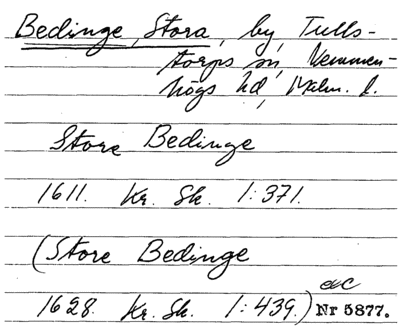 Bedinge, Stora, by, Tulls-
torps sn, Vemmen-
högs hd, Malm. l.
Store Bedinge
1611. Kr. Sk. 1:371.
(Store Bedinge
1628. Kr. Sk. 1:439.) etc Nr 5877.